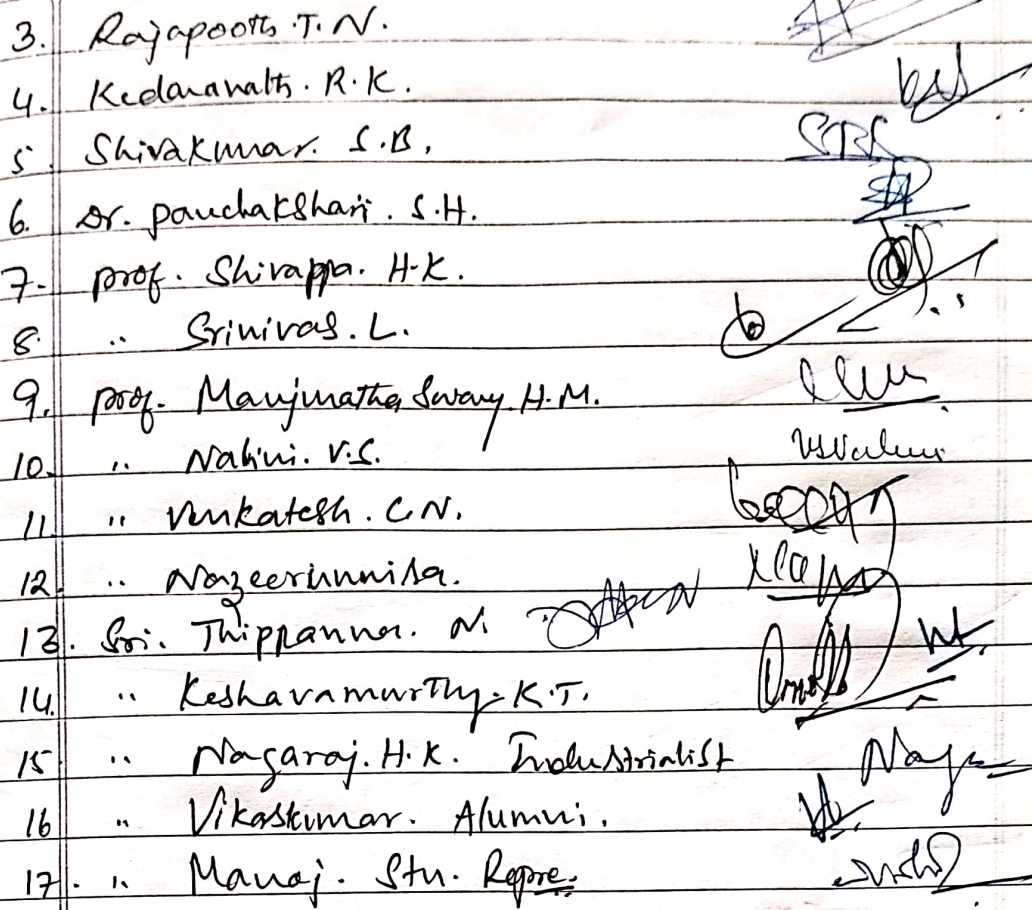 3. Rajapooth T. N.
4. Kedaranath. R. K.
5 Shivakumar. S.B.
6. Dr. panchakshari. S.H.
7. prof. Shivappa. H.K.
8. " Srinivas. L.
9. prof. Manjunatha Swamy. H.M.
10. " Nalini. V.S.
11 " Venkatesh. C.N.
12. " Nazeerunnisa.
13. Sri. Thippanna. N.
14. " Keshavamurthy. K.T.
15 " Nagaraj. H.K. Industrialist
16 " Vikaskumar. Alumni.
17. " Manoj. Stu. Repre.